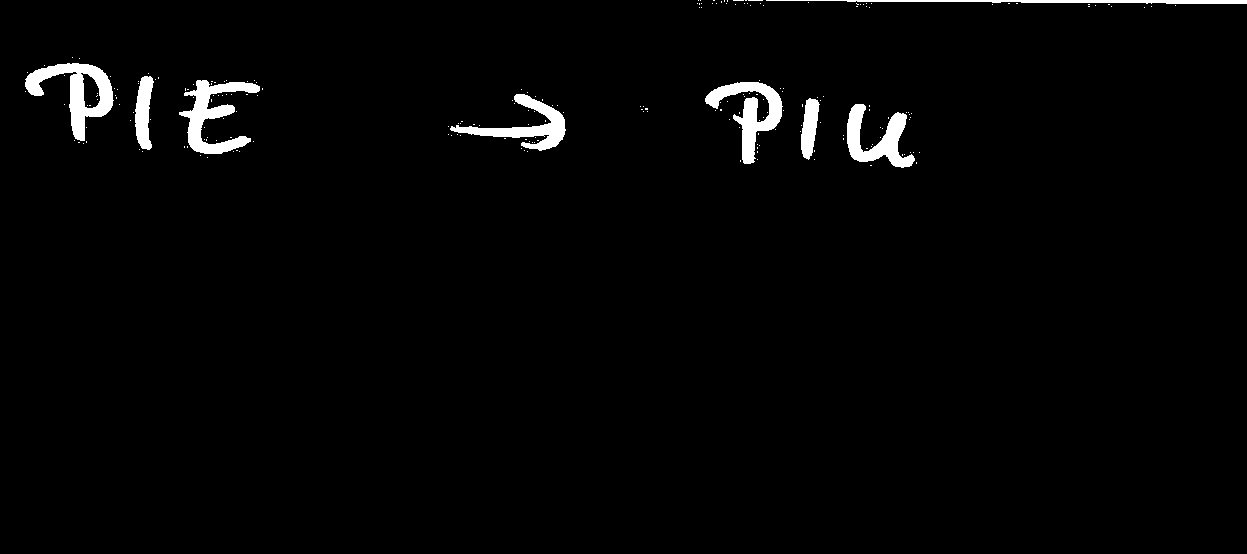 PIE → PIU